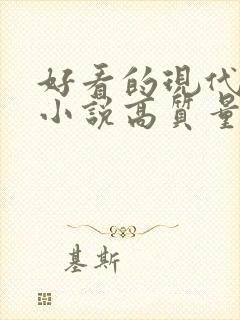 好看的現代
小說高質量
基斯